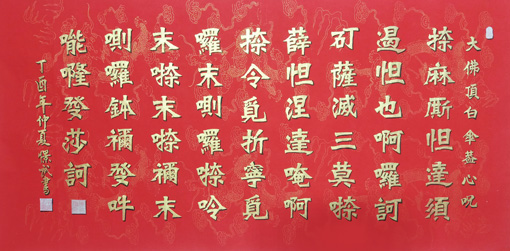 大佛頂白傘蓋心咒
捺麻厮怛達須
遏怛也啊囉訶
矴薩滅三莫捺
薛怛涅達唵啊
捺令覓折寧覓
囉末唎囉捺吟
末捺末捺禰末
唎囉鉢禰發吽
發莎訶
丁酉年仲夏書